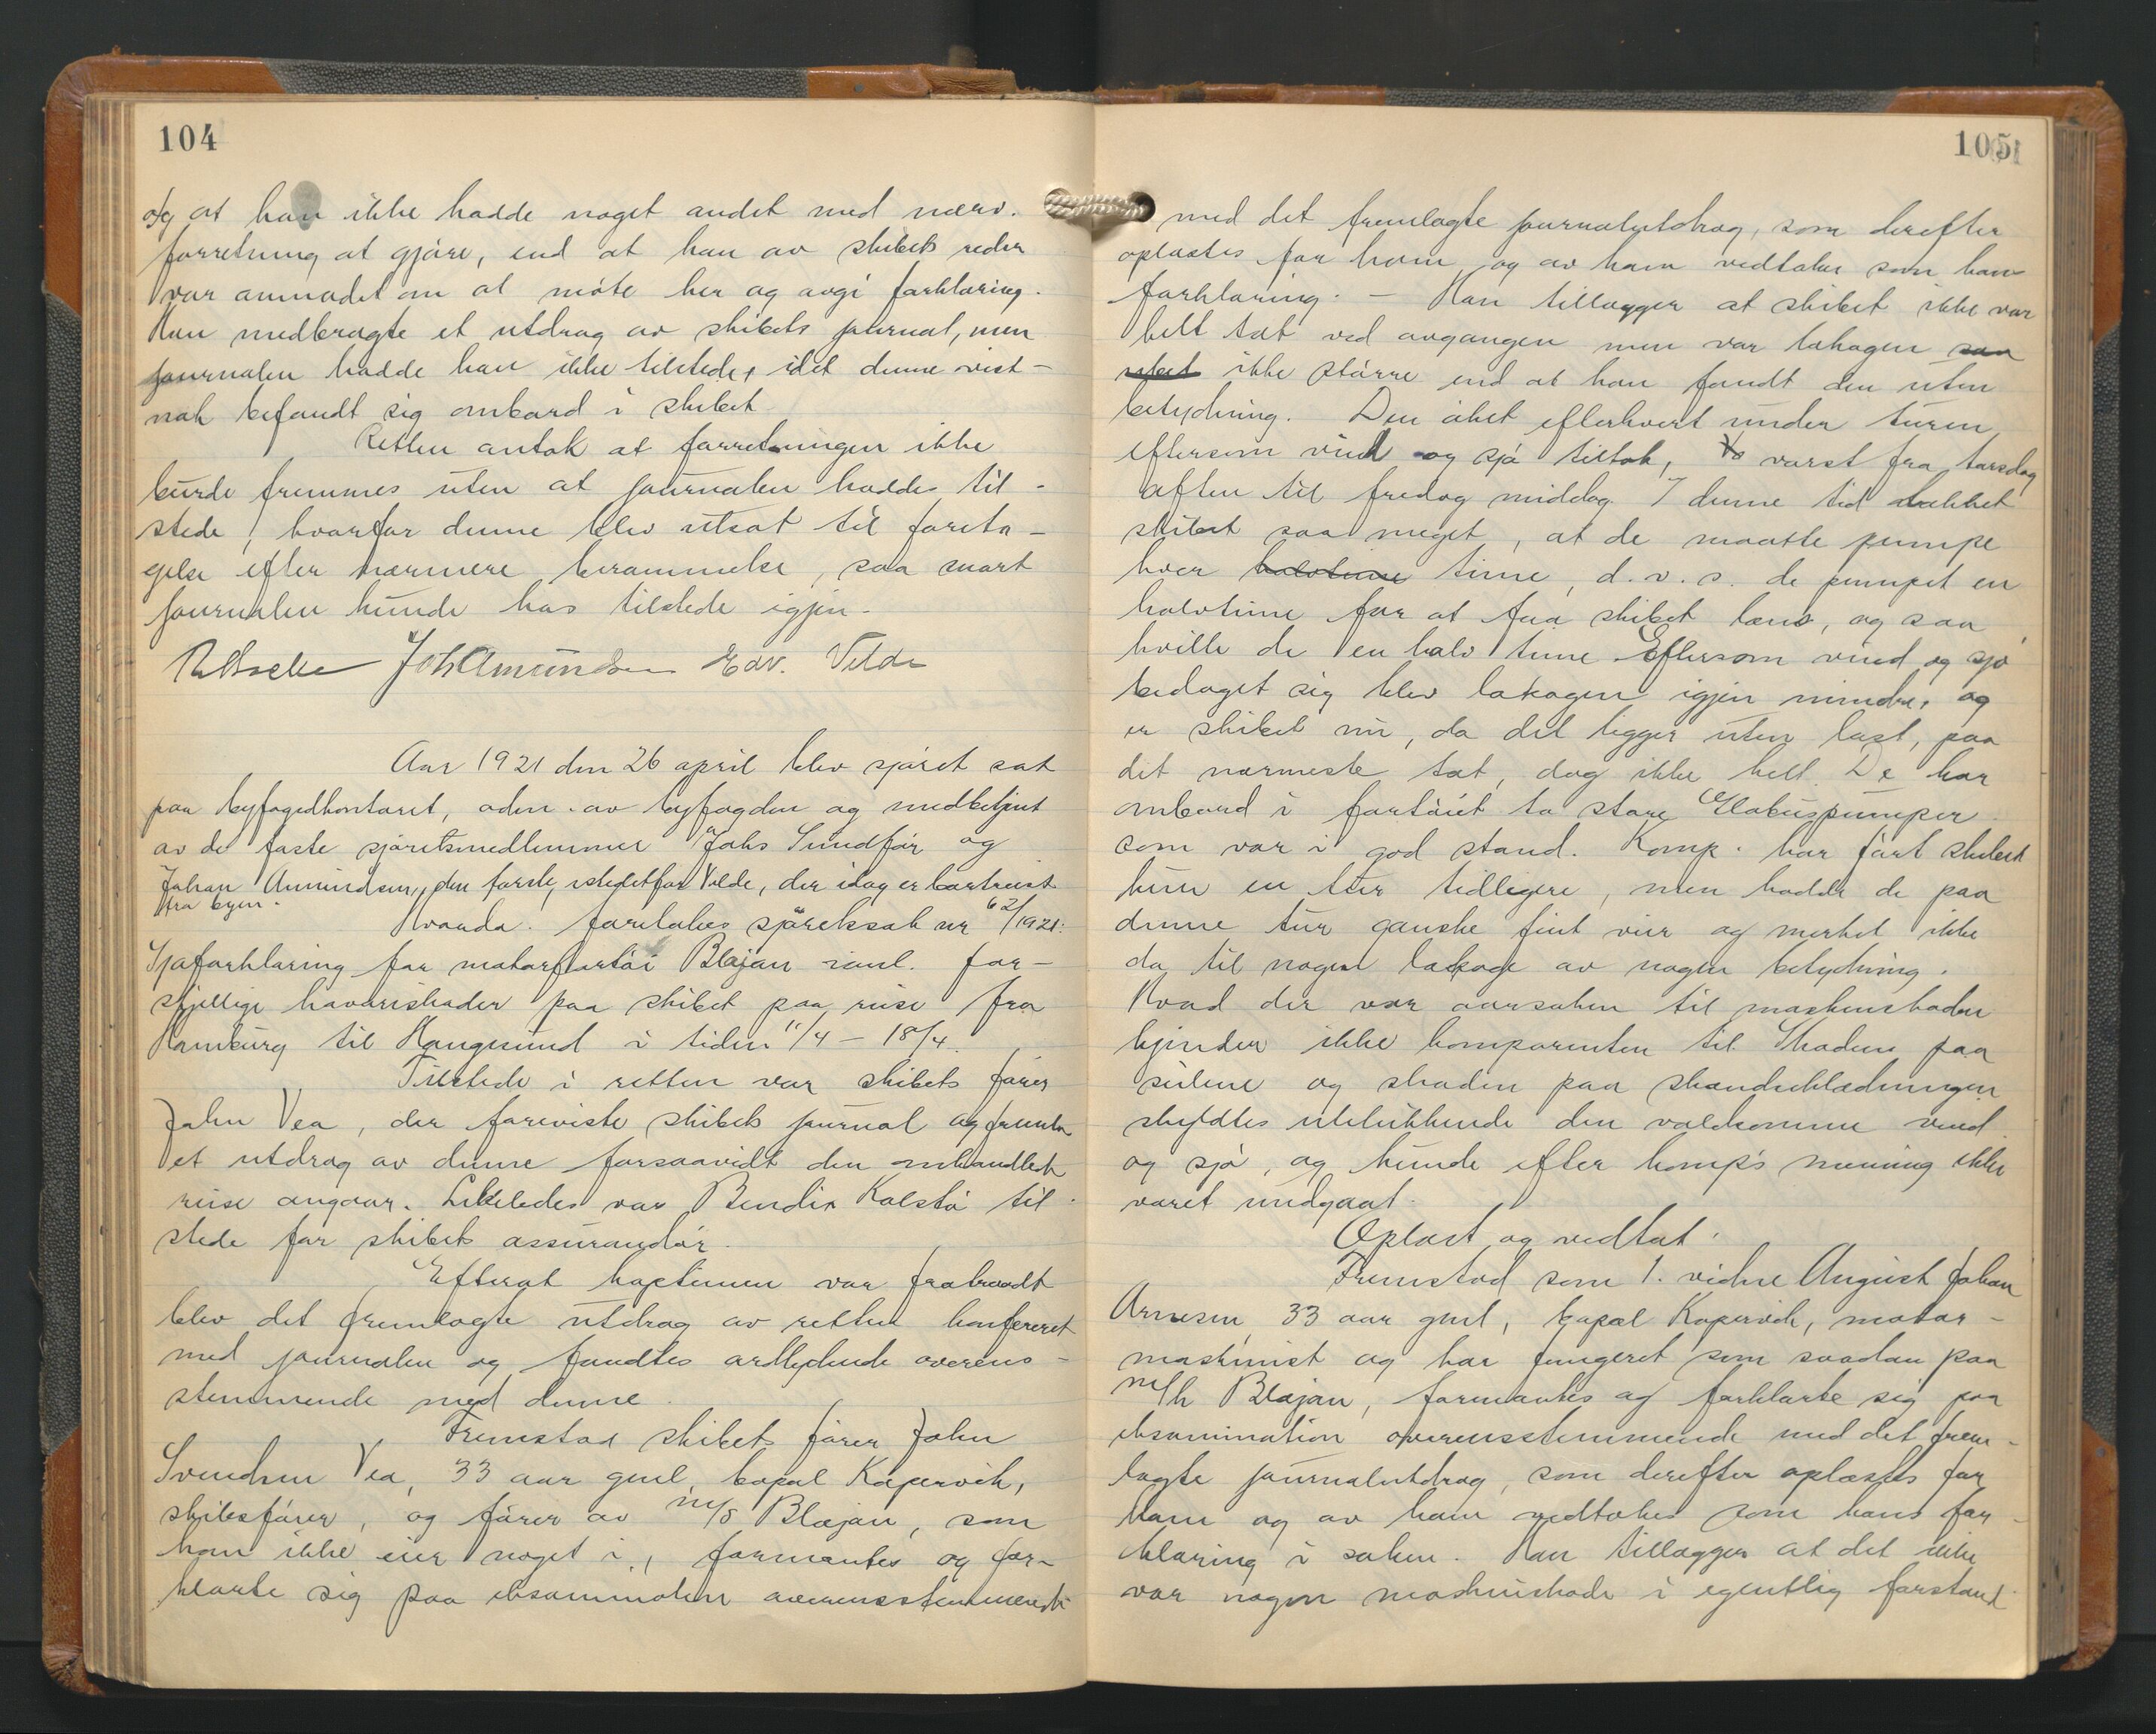 104
og at han ikke hadde noget andet med nærv.
forretning at gjøre, end at han av skibets reder
var anmodet om at møte her og avgi forklaring.
Han medbragte et utdrag av skibets journal, men
journalen hadde han ikke tilstede, idet denne vist-
nok befandt sig ombord i skibet
Retten antok at forretningen ikke
burde fremmes uten at journalen haddes til-
stede, hvorfor denne blev utsat til foreta-
gelse efter nærmere berammelse, saa snart
journalen kunde has tilstede igjen.
Joh Amundsen Edv. Velde
Aar 1921 den 26 april blev sjøret sat
paa byfogedkontoret, adm. av byfogden og medbetjent
av de faste sjøretsmedlemmer Johs Sundfør og
Johan Amundsen, den første istedetfor Velde, der idag er bortreist
fra byen.
Hvorda. foretokes sjøretssak nr 62/1921:
Sjøforklaring for motorfartøi Blaajan anl. for-
skjellige havariskader paa skibet paa reise fra
Hamburg til Haugesund i tiden 11/4 – 18/4.
Tilstede i retten var skibets fører
John Vea, der foreviste skibets journal og fremla
et utdrag av denne forsaavidt den omhandlede
reise angaar. Likeledes var Bendix Kalstø til-
stede for skibets assurandør.
Efterat kapteinen var fratraadt
blev det fremlagte utdrag av retten konfereret
med journalen og fandtes ordlydende overens-
stemmende med denne.
Fremstod skibets fører John
Svendsen Vea, 33 aar gml, bopæl Kopervik,
skibsfører, og fører av m/s Blaajan, som
han ikke eier noget i, formantes og for-
klarte sig paa eksamination overensstemmende
105
med det fremlagte journalutdrag, som derefter
oplæstes for ham og av ham vedtokes som hans
forklaring. – Han tillægger at skibet ikke var
helt tæt ved avgangen men var lækagen saa
ikke større end at han fandt den uten
betydning. Den øket efterhvert under turen
eftersom vind og sjø tiltok, værst fra torsdag
aften til fredag middag I denne tid lækket
skibet saa meget, at de maatte pumpe
hver halvtime time, d.v.s. de pumpet en
halvtime for at faa skibet læns, og saa
hvilte de en halv time Eftersom vind og sjø
bedaget sig blev lækagen igjen mindre, og
er skibet nu, da det ligger uten last, paa
det nærmeste tæt, dog ikke helt. De har
ombord i fartøiet to store Globuspumper
som var i god stand. Komp. har ført skibet
kun en tur tidligere, men hadde de paa
denne tur ganske fint veir og merket ikke
da til nogen lækage av nogen betydning.
Hvad der var aarsaken til maskinskaden
kjender ikke komparenten til. Skaden paa
seilene og skaden paa skandseklædningen
skyldtes utelukkende den voldsomme vind
og sjø, og kunde efter komp's mening ikke
været undgaat.
Oplæst og vedtat.
Fremstod som 1. vidne August Johan
Arnesen, 33 aar gml, bopæl Kopervik, motor-
maskinist og har fungeret som saadan paa
m/k Blaajan, formantes og forklarte sig paa
eksamination overensstemmende med det frem-
lagte journalutdrag, som derefter oplæstes for
ham og av ham vedtokes som hans for-
klaring i saken. Han tillægger at det ikke
var nogen maskinskade i egentlig forstand